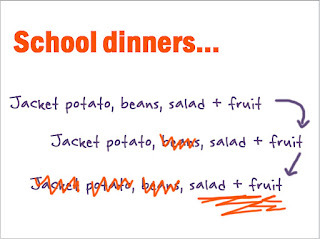 School dinners...
Jacket potato, beans, salad + fruit
Jacket potato, beans, salad + fruit
Jacket potato, beans, salad + fruit